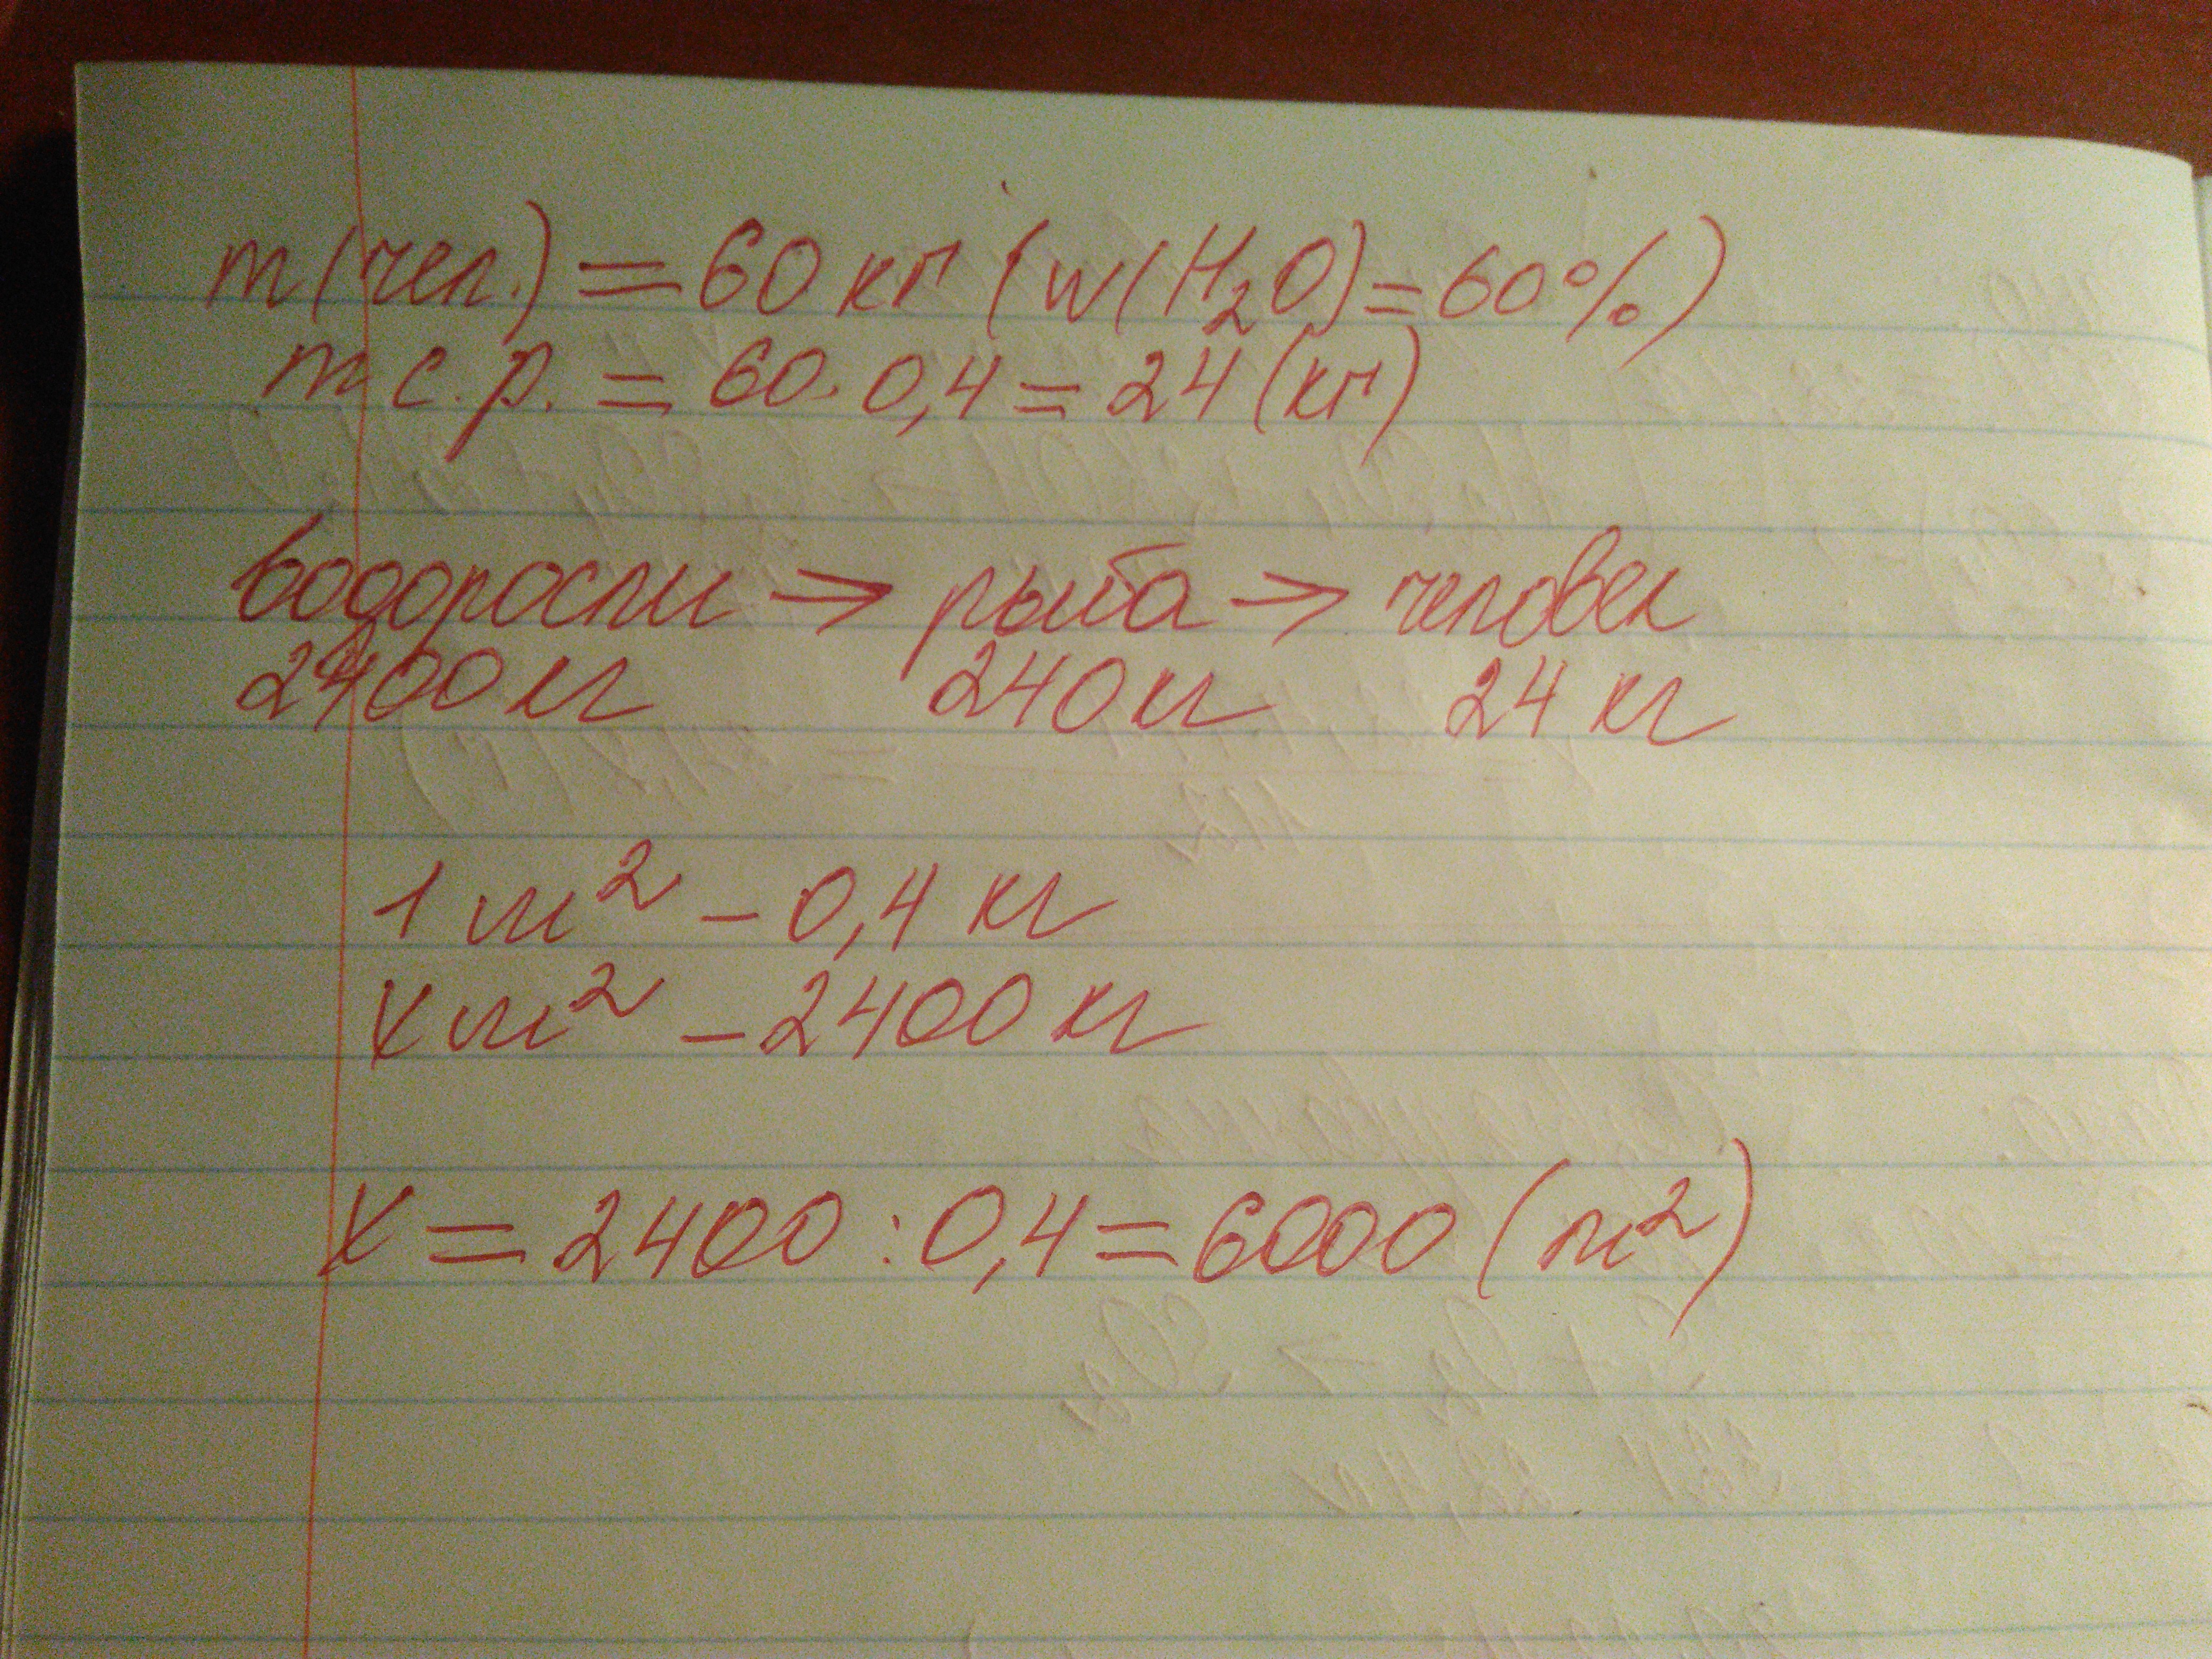 m(чел.) = 60 кг (w(H₂O) = 60%)
m с.р. = 60 · 0,4 = 24 (кг)
водоросли → рыба → человек
2400 кг 240 кг 24 кг
1 м² – 0,4 кг
x м² – 2400 кг
x = 2400 : 0,4 = 6000 (м²)